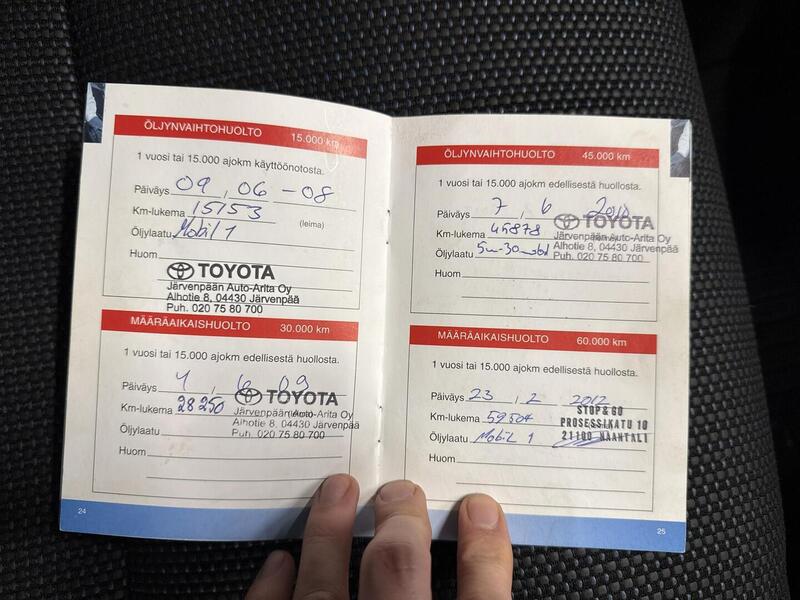 ÖLJYNVAIHTOHUOLTO 15.000 km
1 vuosi tai 15.000 ajokm käyttöönotosta.
Päiväys 09 . 06 - 08
Km-lukema 15153
(leima)
Öljylaatu Mobil 1
Huom
TOYOTA
Järvenpään Auto-Arita Oy
Alhotie 8, 04430 Järvenpää
Puh. 020 75 80 700
MÄÄRÄAIKAISHUOLTO 30.000 km
1 vuosi tai 15.000 ajokm edellisestä huollosta.
Päiväys 1 . 6 09
Km-lukema 28250
Öljylaatu
Huom
TOYOTA
Järvenpään Auto-Arita Oy
Alhotie 8, 04430 Järvenpää
Puh. 020 75 80 700
24
ÖLJYNVAIHTOHUOLTO 45.000 km
1 vuosi tai 15.000 ajokm edellisestä huollosta.
Päiväys 7 . 6 2010
Km-lukema 45878
Öljylaatu 5w-30
Huom
TOYOTA
Järvenpään Auto-Arita Oy
Alhotie 8, 04430 Järvenpää
Puh. 020 75 80 700
MÄÄRÄAIKAISHUOLTO 60.000 km
1 vuosi tai 15.000 ajokm edellisestä huollosta.
Päiväys 23 . 2 2012
Km-lukema 59504
Öljylaatu Mobil 1
Huom
STOP & GO
PROSESSIKATU 10
21100 NAANTALI
25